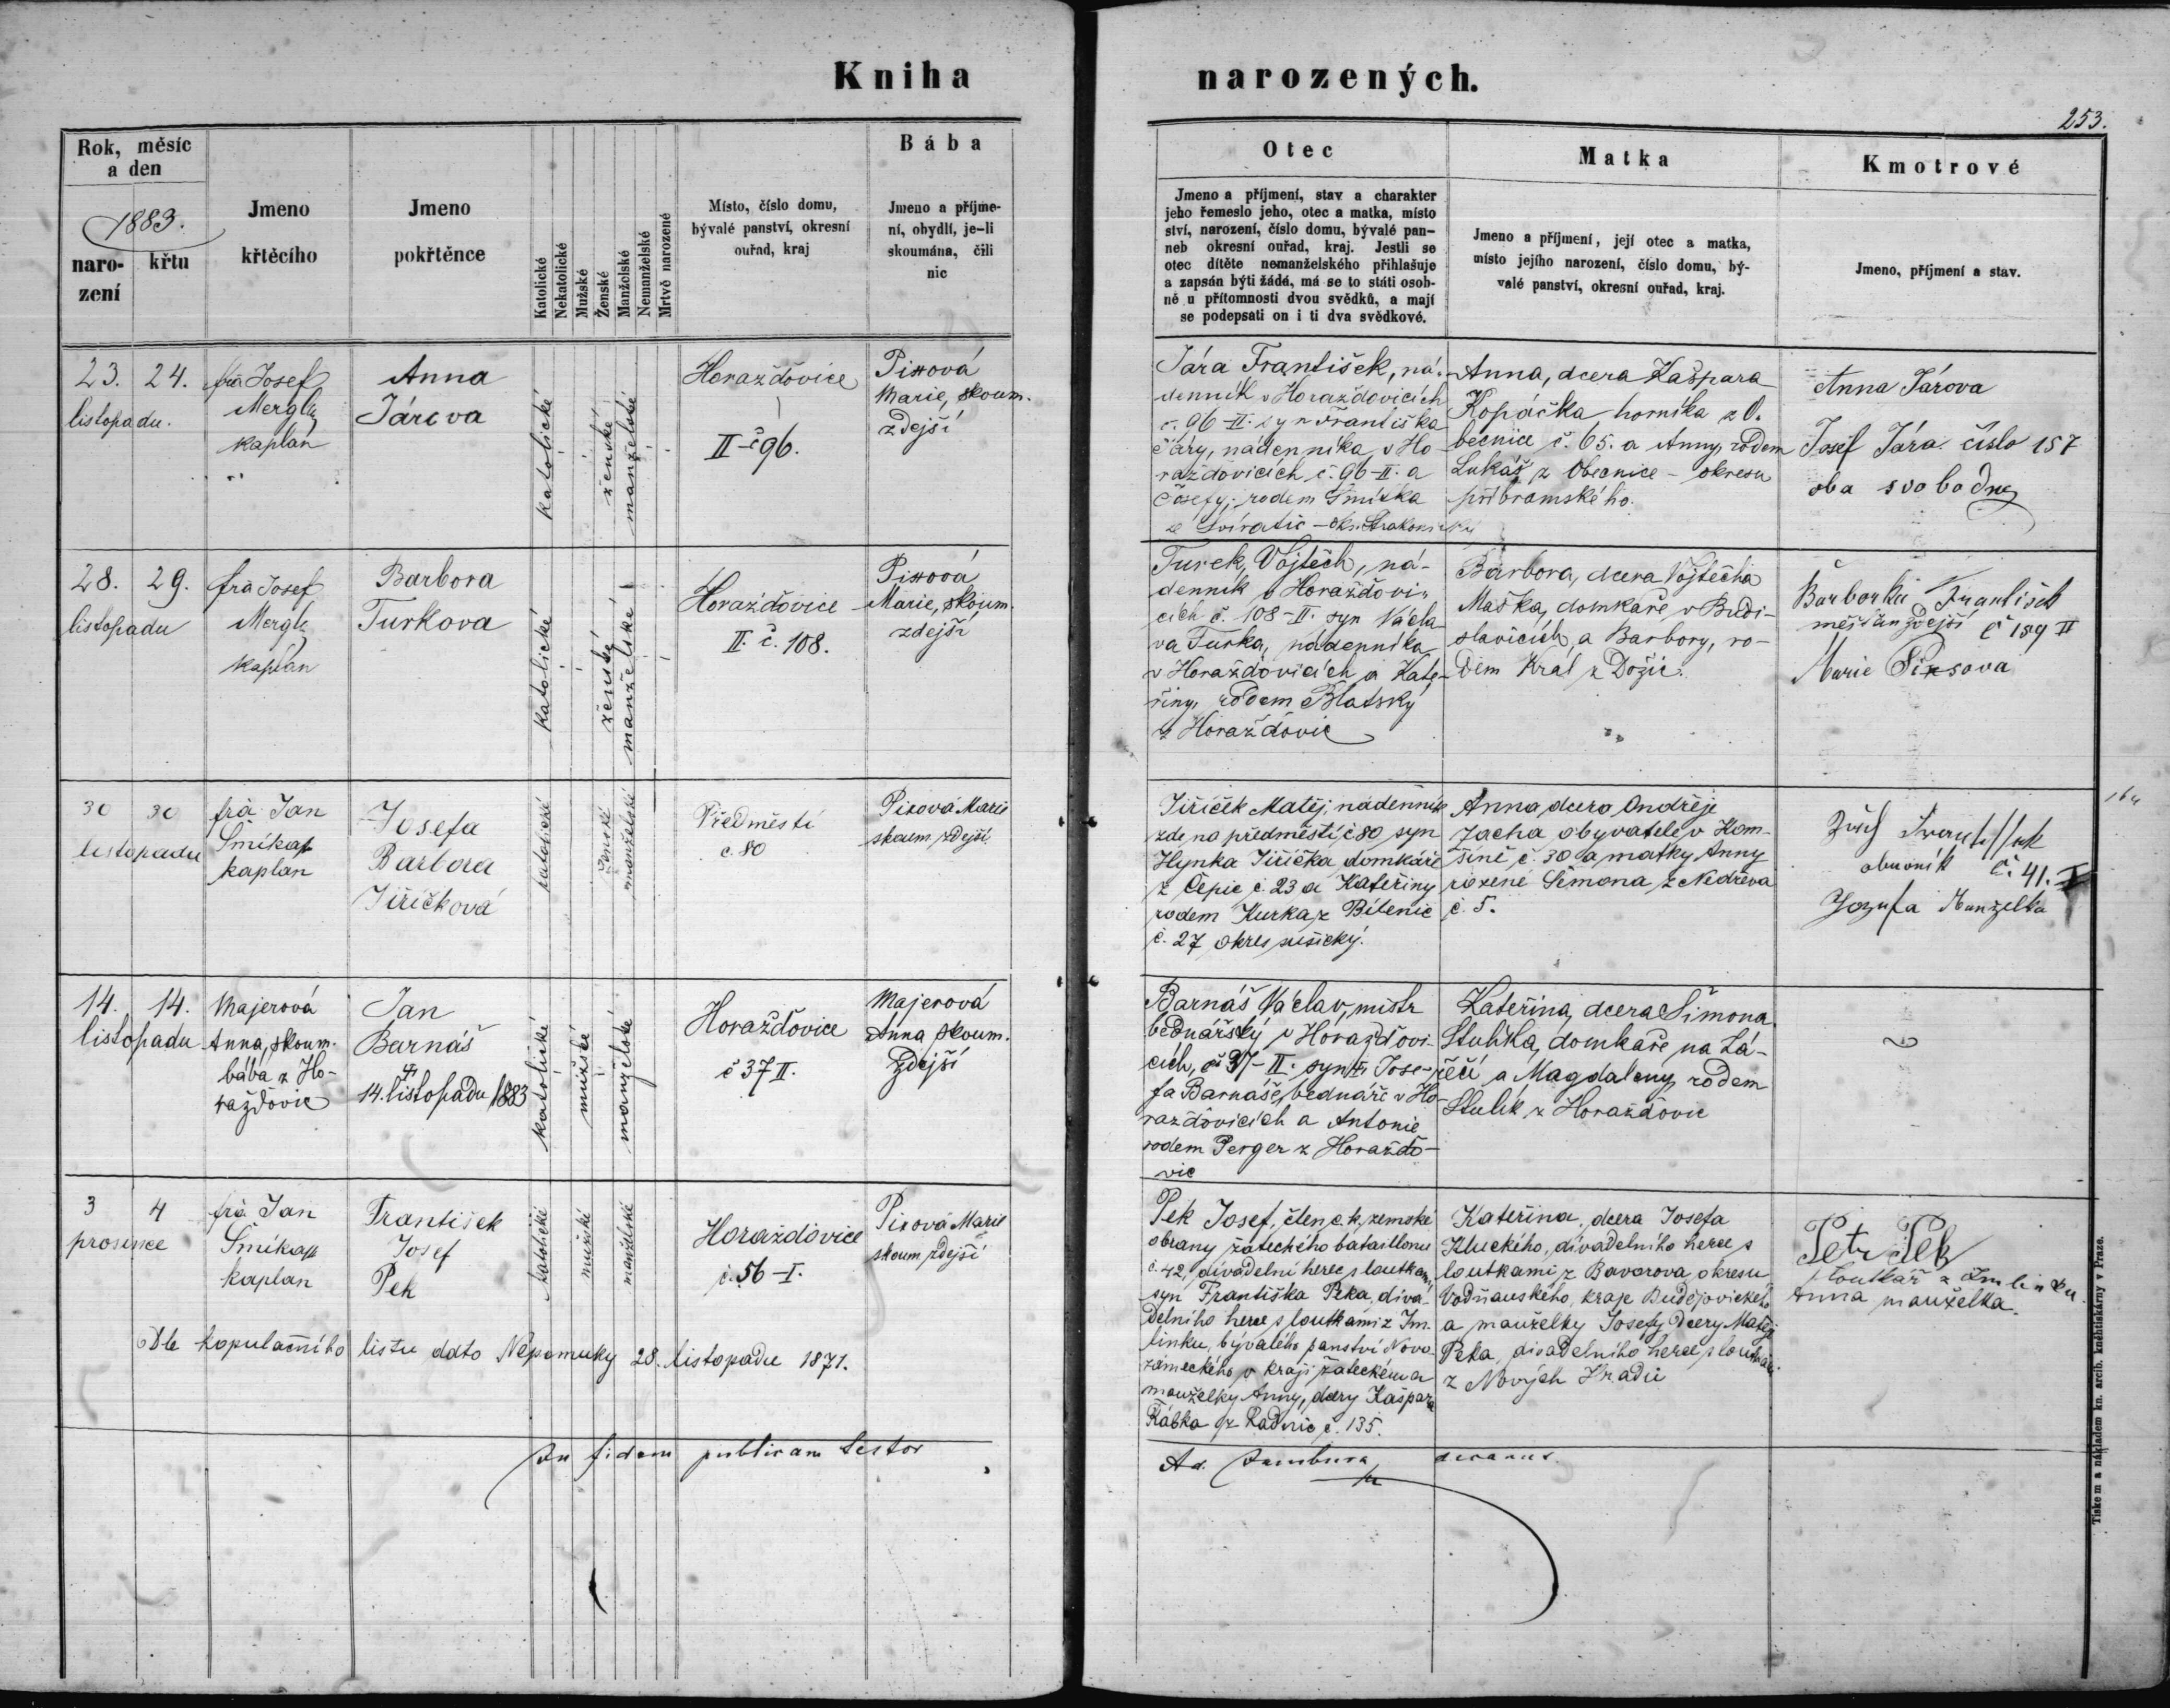 Kniha narozených.
253.
Rok, měsíc
a den
1883.
naro-
zení
křtu
Jmeno
křtěcího
Jmeno
pokřtěnce
Katolické
Nekatolické
Mužské
Ženské
Manželské
Nemanželské
Mrtvě narozené
Místo, číslo domu,
bývalé panství, okresní
ouřad, kraj
Bába
Jmeno a příjme-
ní, obydlí, je-li
skoumána, čili
nic
Otec
Jmeno a příjmení, stav a charakter
jeho řemeslo jeho, otec a matka, místo
ství, narození, číslo domu, bývalé pan-
neb okresní ouřad, kraj. Jestli se
otec dítěte nemanželského přihlašuje
a zapsán býti žádá, má se to státi osob-
ně u přítomnosti dvou svědků, a mají
se podepsati on i ti dva svědkové.
Matka
Jmeno a příjmení, její otec a matka,
místo jejího narození, číslo domu, bý-
valé panství, okresní ouřad, kraj.
Kmotrové
Jmeno, příjmení a stav.
23. 24.
listopadu.
Josef
Mergl
kaplan
Anna
Járova
katolické
ženské
manželské
Horažďovice
II-č 96.
Marie, skoum.
zdejší
Jára František, ná-
denník v Horažďovicích
č. 96-II. syn Františka
Járy, nádenníka v Ho-
raždovicích č. 96-II. a
Josefy, rodem Šmitka
Anna, dcera Kašpara
Kopáčka horníka z O-
becnice č. 65. a Anny, rodem
Lukáš z Obecnice - okresu
příbramského.
Anna Járova
Josef Jára číslo 157
oba svobodny
28. 29.
listopadu
frà Josef
Mergl
kaplan
Barbora
Turkova
katolické
ženské
manželské
Horažďovice
II. č. 108.
Marie, skoum.
zdejší
Turek, Vojtěch, ná-
denník v Horažďovi-
cích č. 108-II. syn Václa-
va Turka, nádenníka
v Horažďovicích a Kate-
řiny, rodem Blatský
z Horažďovic
Barbora, dcera Vojtěcha
Maška, domkaře v Budi-
slavicích a Barbory, ro-
dem Král z Dožic.
František
měšťan zdejší č 189 II
Marie
30 30
listopadu
frà Jan
kaplan
Josefa
Barbora
Jiříčková
katolické
ženské
manželské
Předměstí
č. 80
Pixová Marie
skoum. zdejší
Jiříček Matěj, nádenník
zde na předměstí č 80 syn
Hynka Jiříčka domkáře
z Čepic č. 23 a Kateřiny
rodem Kurka z Bílenic
č. 27 okres sušický.
Anna dcera Ondřeje
Zacha obyvatele v Kom-
šíně č. 30 a matky Anny
rozené Šimona z Nedřeva
č. 5.
obuvník č. 41. I
Manželka
14. 14.
listopadu
Majerová
Anna, skoum.
bába z Ho-
ražďovic
Jan
Barnáš
14. listopadu 1883
katolické
mužské
manželské
Horažďovice
č 37 II.
Majerová
Anna skoum.
Zdejší
Barnáš Václav, mistr
bednářský v Horažďovi-
cích, č 37-II. syn Jose-
fa Barnáše, bednáře v Ho-
ražďovicích a Antonie
rodem Perger z Horažďo-
vic
Kateřina, dcera Šimona
Stulíka, domkaře na Lá-
zečí a Magdaleny rodem
Stulík z Horažďovic
3 4
prosince
frà Jan
kaplan
František
Josef
Pek
katolické
mužské
manželské
Horaždovice
č. 56-I.
Pixová Marie
skoum. zdejší
Dle kopulačního listu ddto Nepomuky 28. listopadu 1871.
Pek Josef, člen c. k. zemské
obrany žateckého bataillonu
č. 42, divadelní herec s loutkami,
syn Františka Peka, diva-
delního herce s loutkami z Im-
linku, bývalého panství Novo-
zámeckého v kraji žateckém a
manželky Anny, dcery Kašpara
Rábka z Radnic č. 135.
Kateřina, dcera Josefa
Kluckého, divadelního herce s
loutkami z Bavorova, okresu
Vodňanského, kraje Budějovického
a manželky Josefy dcery Matěje
Peka, divadelního herce s loutkami
z Nových Hradů
Petr Pek
loutkař z Imlinku
Anna manželka.
In fidem publicam testor
decanus.
Tiskem a nákladem kn. arcib. kněhtiskárny v Praze.